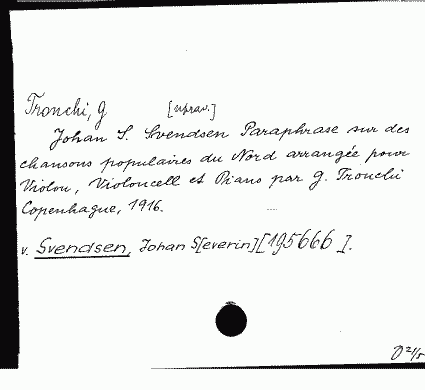 Tronchi, G [uprav.]
Johan S. Svendsen Paraphrase sur des
chansons populaires du Nord arrangée pour
Violon, Violoncell et Piano par G. Tronchi
Copenhague, 1916.
v. Svendsen, Johan S[everin] [195666].